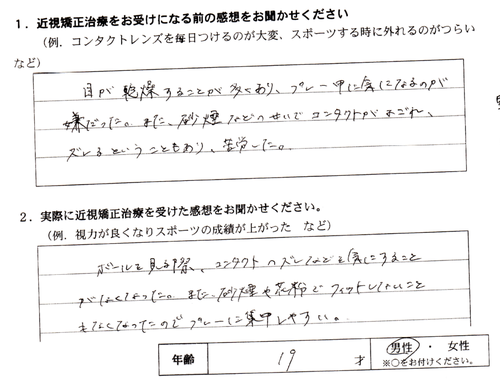 1．近視矯正治療をお受けになる前の感想をお聞かせください
（例．コンタクトレンズを毎日つけるのが大変、スポーツする時に外れるのがつらい
など）
目が乾燥することが多くあり、プレー中に気になるのが
嫌だった。また、砂煙などのせいでコンタクトがよごれ、
ズレるということもあり、苦労した。
2．実際に近視矯正治療を受けた感想をお聞かせください。
（例．視力が良くなりスポーツの成績が上がった　など）
ボールを見る際、コンタクトのズレなどを気にすること
がなくなった。また、砂煙や花粉でフィットしないこと
もなくなったのでプレーに集中しやすい。
年齢　19　才　男性 ・ 女性
※○をお付けください。